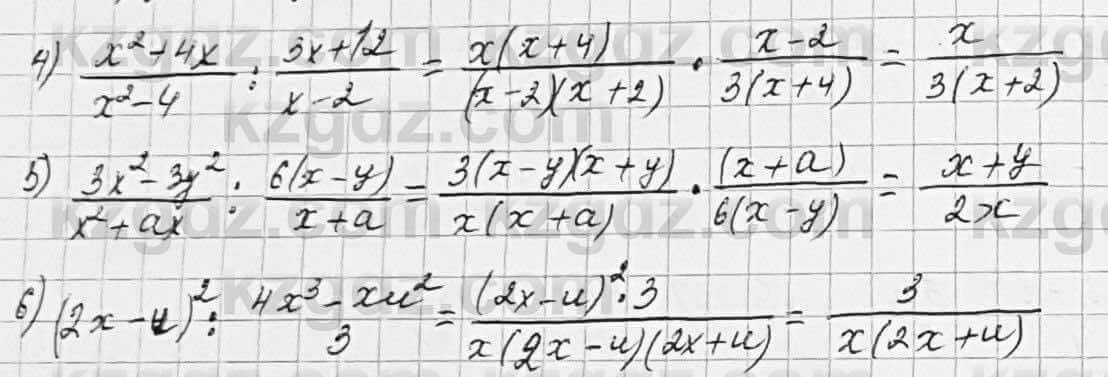 4) \frac{x^2+4x}{x^2-4} : \frac{3x+12}{x-2} = \frac{x(x+4)}{(x-2)(x+2)} \cdot \frac{x-2}{3(x+4)} = \frac{x}{3(x+2)}
5) \frac{3x^2-3y^2}{x^2+ax} : \frac{6(x-y)}{x+a} = \frac{3(x-y)(x+y)}{x(x+a)} \cdot \frac{(x+a)}{6(x-y)} = \frac{x+y}{2x}
6) (2x-u)^2 : \frac{4x^3-xu^2}{3} = \frac{(2x-u)^2 \cdot 3}{x(2x-u)(2x+u)} = \frac{3}{x(2x+u)}
kzgdz.com